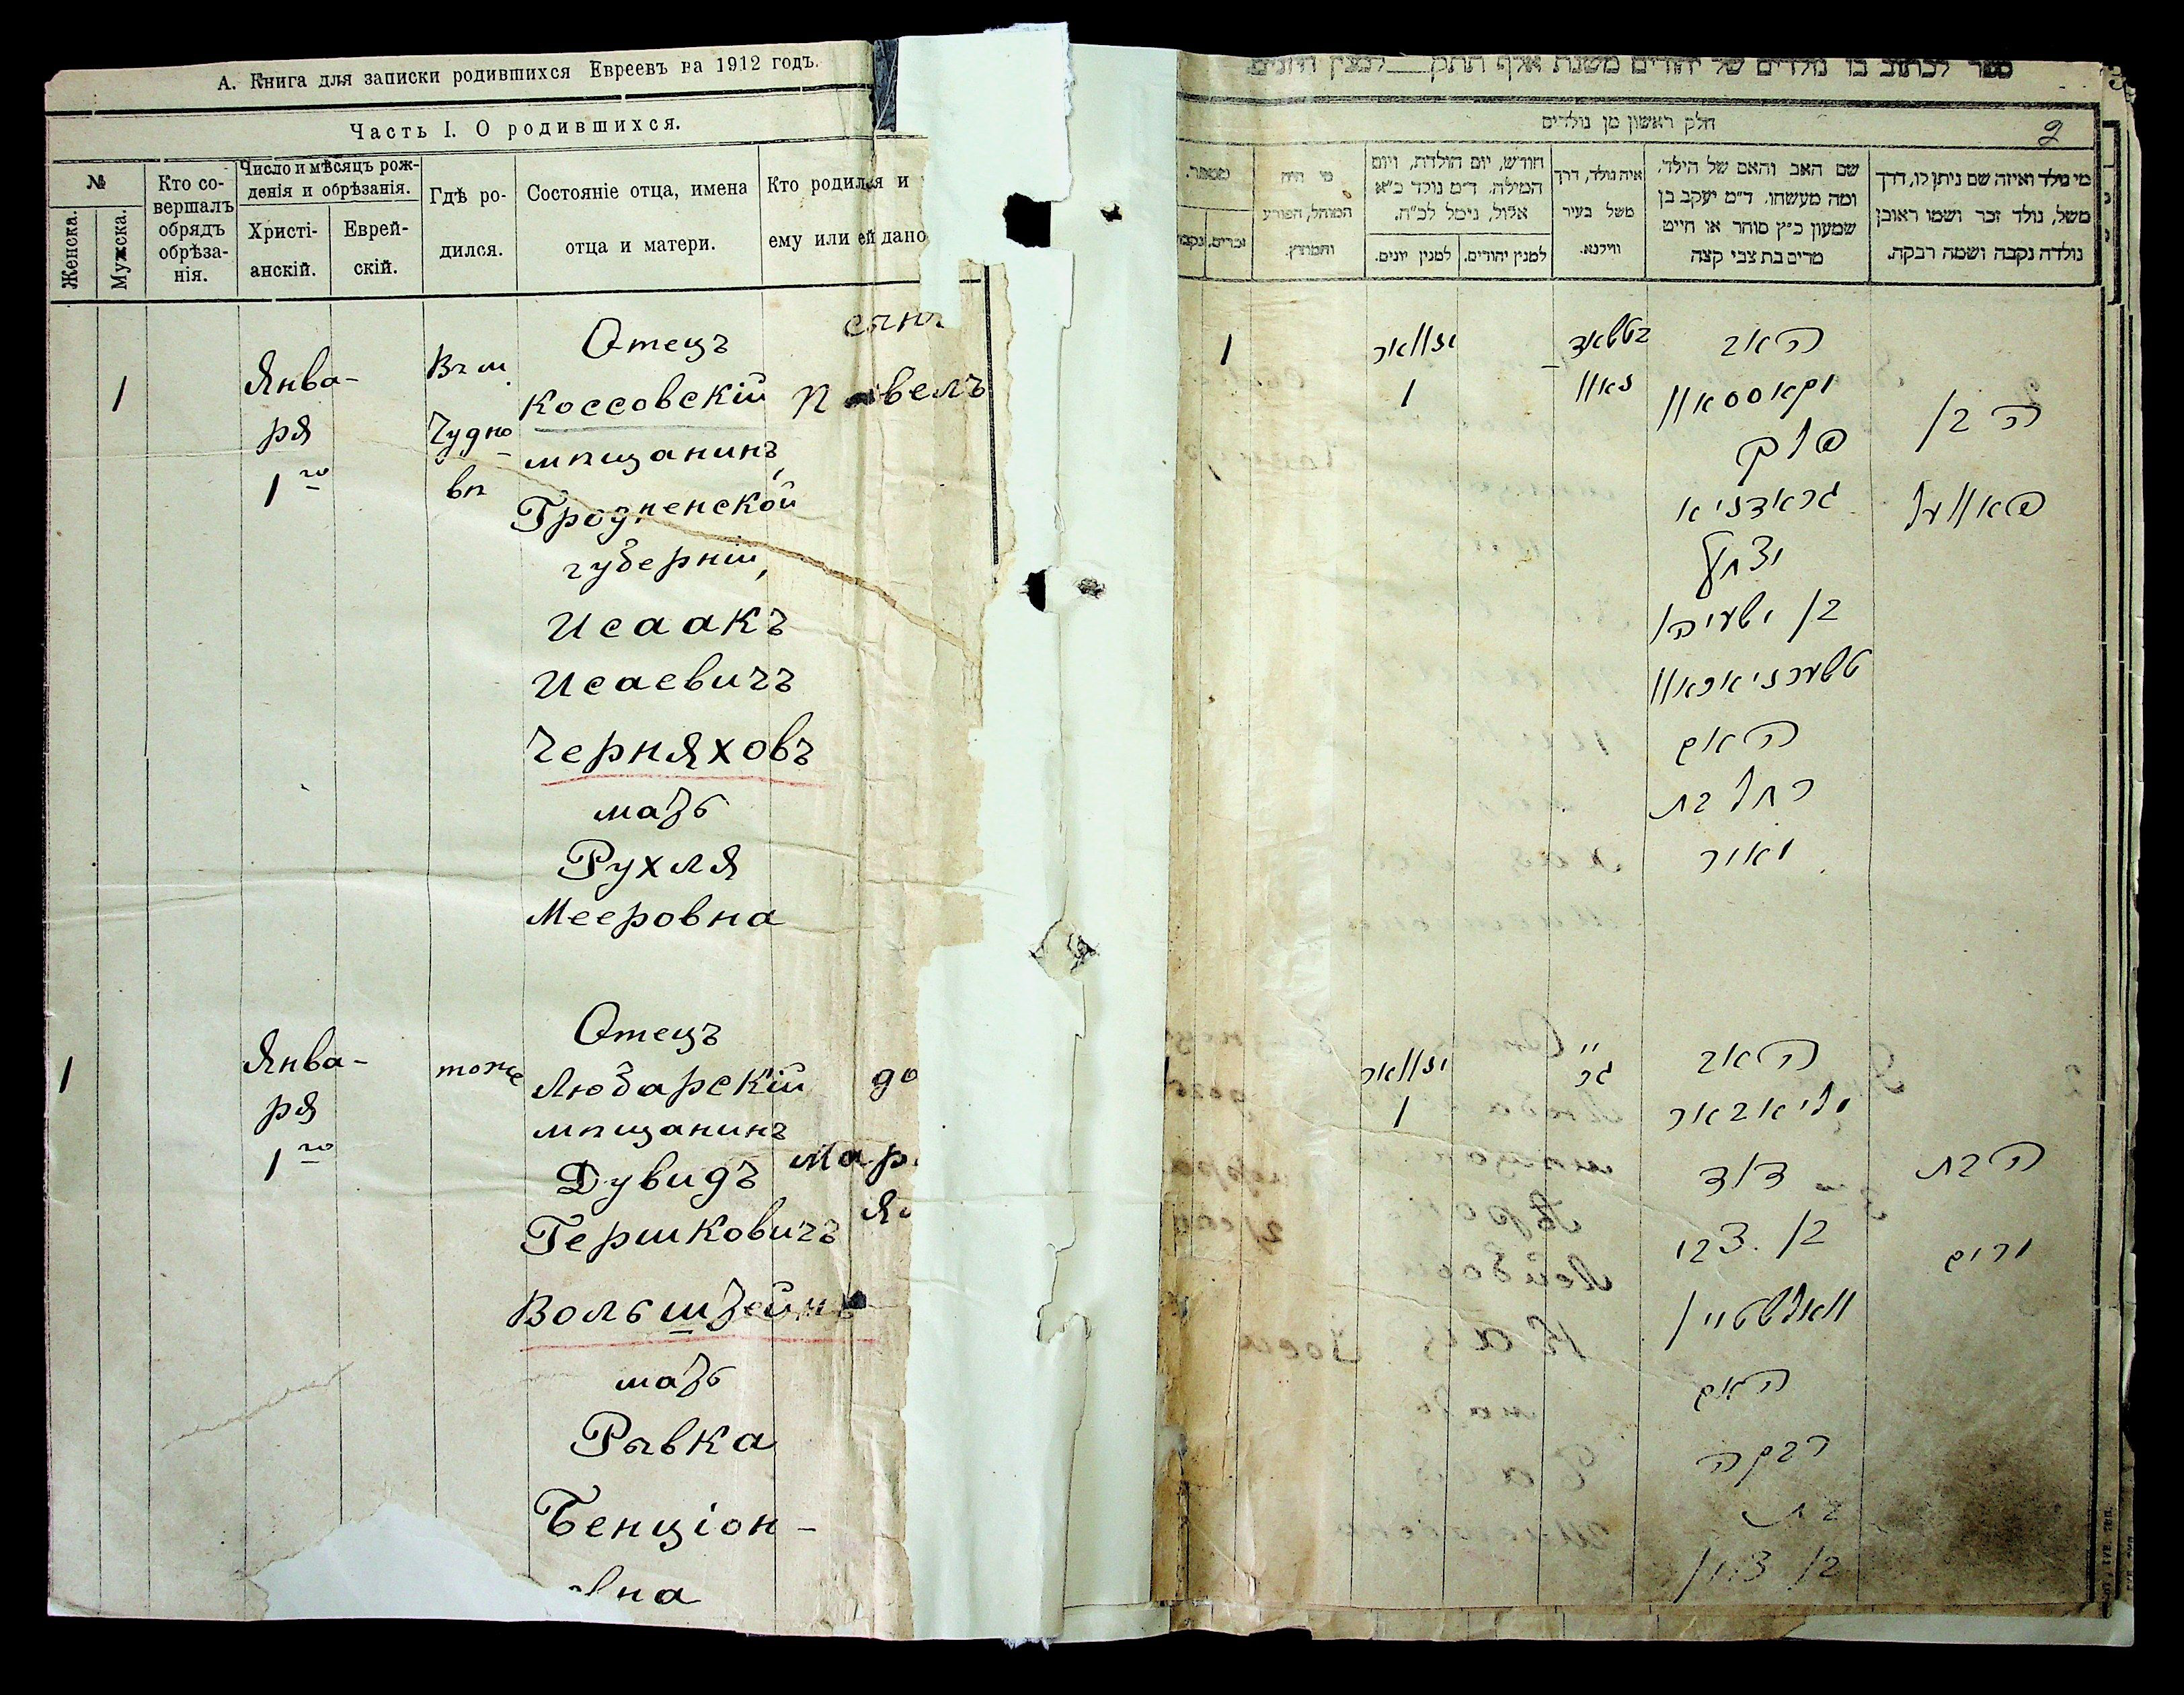 А. Книга для записки родившихся Евреевъ на 1912 годъ.
Часть I. О родившихся.
№
Женска.
Мужска.
Кто со-
вершалъ
обрядъ
обрѣза-
нія.
Число и мѣсяцъ рож-
денія и обрѣзанія.
Христі-
анскій.
Еврей-
скій.
Гдѣ ро-
дился.
Состояніе отца, имена
отца и матери.
Кто родился и
ему или ей дано
1
Янва-
ря
1го
Въ м.
Чудно-
вѣ
Отецъ
Коссовскій
мѣщанинъ,
Гродненской
губерніи,
Исаакъ
Исаевичъ
Черняховъ
мать
Рухля
Мееровна
сынъ
Павелъ
1
Янва-
ря
1го
тоже
Отецъ
Любарскій
мѣщанинъ
Дувидъ
Гершковичъ
Вольштейнъ
мать
Рывка
Бенціон-
вна
до
Мар
ספר לכתוב בו נולדים של יהודים משנת אלף תתק למנין היונים
חלק ראשון מן נולדים
2
מי נולד ואיזה שם ניתן לו, דרך
משל, נולד זכר ושמו ראובן
נולדה נקבה ושמה רבקה.
שם האב והאם של הילד,
ומה מעשהו, ד״מ יעקב בן
שמעון כ״ץ סוחר או חייט
מרים בת צבי קצה
איה נולד, דרך
משל בעיר
ווילנא.
חודש, יום הולדת, ויום
המילה, ד״מ נולד כ״א
אלול, נימל לכ״ח.
למנין יהודים.
למנין יונים.
מי היה
המוהל, הפורע
והמוצץ.
מספר.
זכרים.
נקבות
1
יאנוואר
1
האב
הבן
פאוועל
בן ישעיהו
טשערניאכאוו
האם
רחל בת
מאיר
יאנוואר
1
האב
דוד
בן צבי
וואלשטיין
האם
רבקה
בת
בן ציון
הבת
מרים